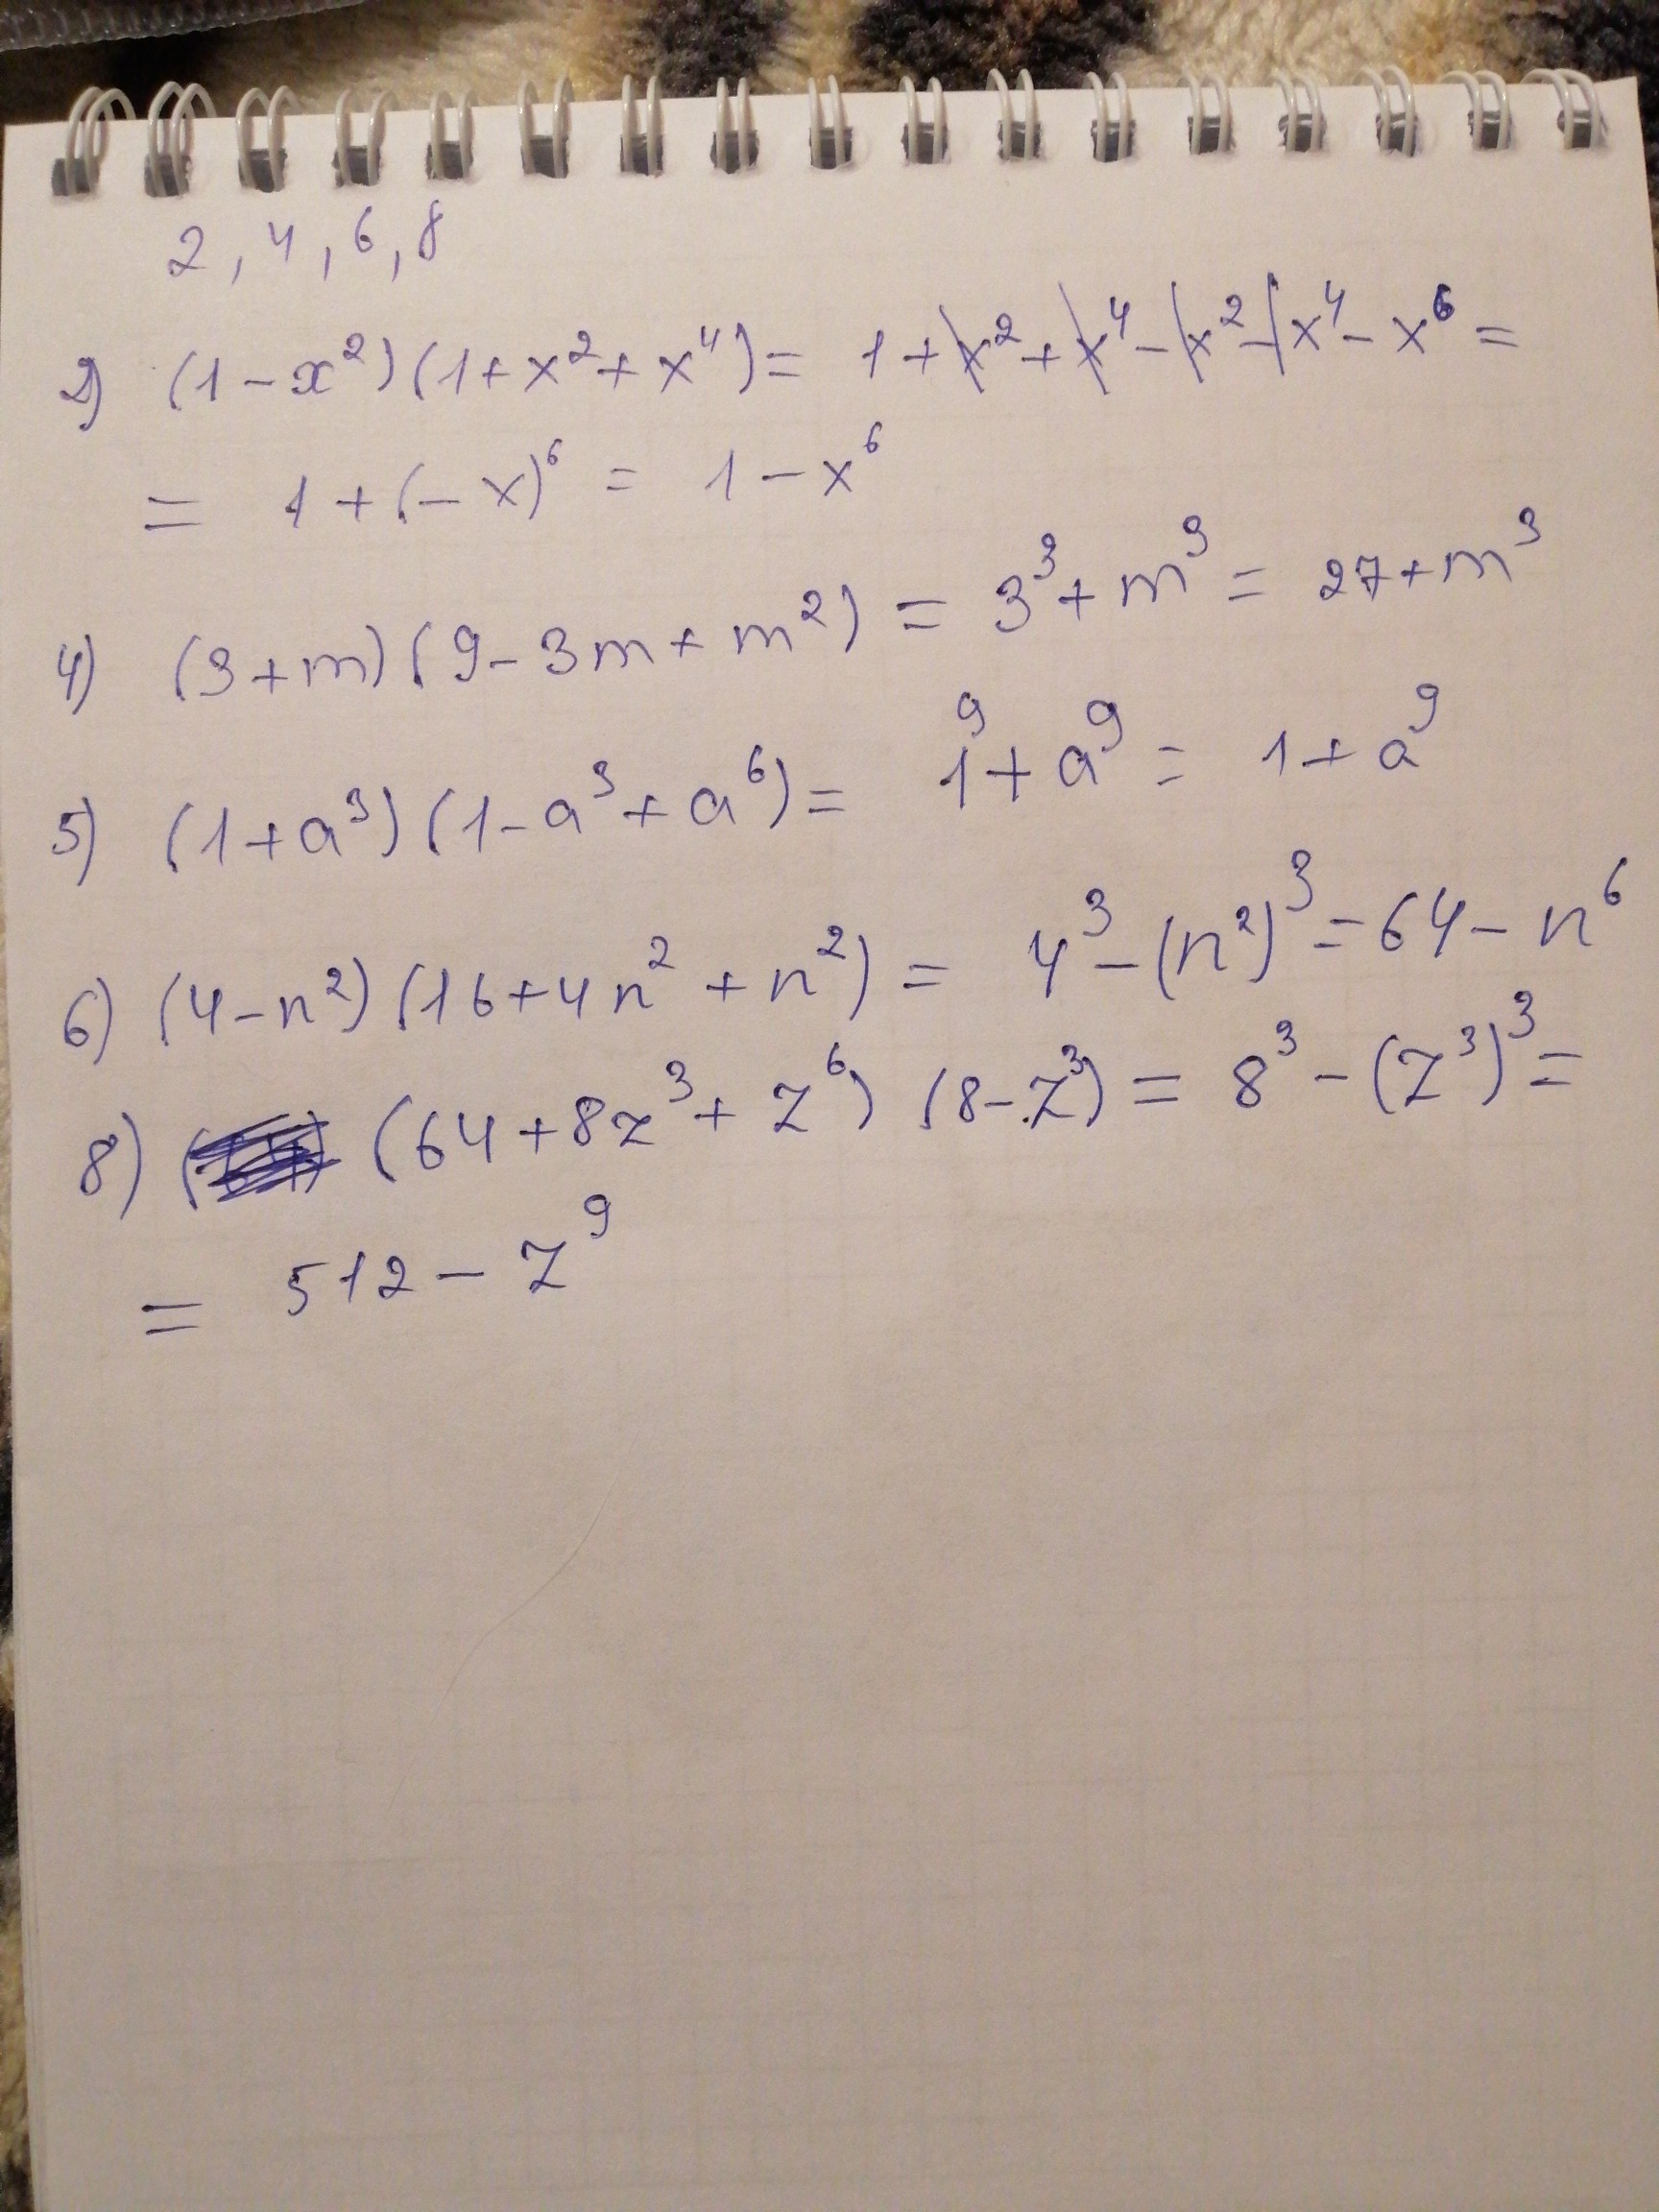 2, 4, 6, 8
2) (1-x²)(1+x²+x⁴)= 1+x²+x⁴-x²-x⁴-x⁶=
= 1+(-x)⁶ = 1-x⁶
4) (3+m)(9-3m+m²) = 3³+m³ = 27+m³
5) (1+a³)(1-a³+a⁶)= 1⁹+a⁹ = 1+a⁹
6) (4-n²)(16+4n²+n²) = 4³-(n²)³=64-n⁶
8) (64+8z³+z⁶) (8-z³) = 8³-(z³)³=
= 512-z⁹